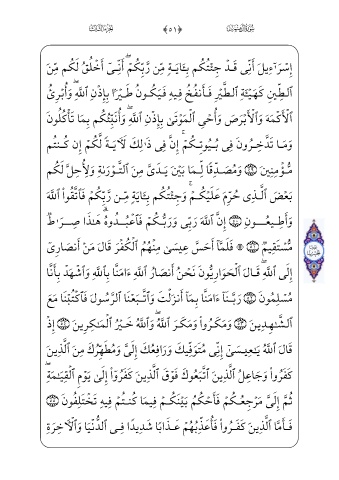 سورة آل عمران ﴿٥١﴾ الجزء الثالث
إِسْرَٰٓءِيلَ أَنِّى قَدْ جِئْتُكُم بِـَٔايَةٍ مِّن رَّبِّكُمْ ۖ أَنِّىٓ أَخْلُقُ لَكُم مِّنَ
ٱلطِّينِ كَهَيْـَٔةِ ٱلطَّيْرِ فَأَنفُخُ فِيهِ فَيَكُونُ طَيْرًۢا بِإِذْنِ ٱللَّهِ ۖ وَأُبْرِئُ
ٱلْأَكْمَهَ وَٱلْأَبْرَصَ وَأُحْىِ ٱلْمَوْتَىٰ بِإِذْنِ ٱللَّهِ ۖ وَأُنَبِّئُكُم بِمَا تَأْكُلُونَ
وَمَا تَدَّخِرُونَ فِى بُيُوتِكُمْ ۚ إِنَّ فِى ذَٰلِكَ لَـَٔايَةً لَّكُمْ إِن كُنتُم
مُّؤْمِنِينَ ﴿٤٩﴾ وَمُصَدِّقًا لِّمَا بَيْنَ يَدَىَّ مِنَ ٱلتَّوْرَىٰةِ وَلِأُحِلَّ لَكُم
بَعْضَ ٱلَّذِى حُرِّمَ عَلَيْكُمْ ۚ وَجِئْتُكُم بِـَٔايَةٍ مِّن رَّبِّكُمْ فَٱتَّقُوا۟ ٱللَّهَ
وَأَطِيعُونِ ﴿٥٠﴾ إِنَّ ٱللَّهَ رَبِّى وَرَبُّكُمْ فَٱعْبُدُوهُ ۗ هَٰذَا صِرَٰطٌ
مُّسْتَقِيمٌ ﴿٥١﴾ ۞ فَلَمَّآ أَحَسَّ عِيسَىٰ مِنْهُمُ ٱلْكُفْرَ قَالَ مَنْ أَنصَارِىٓ
إِلَى ٱللَّهِ ۖ قَالَ ٱلْحَوَارِيُّونَ نَحْنُ أَنصَارُ ٱللَّهِ ءَامَنَّا بِٱللَّهِ وَٱشْهَدْ بِأَنَّا
مُسْلِمُونَ ﴿٥٢﴾ رَبَّنَآ ءَامَنَّا بِمَآ أَنزَلْتَ وَٱتَّبَعْنَا ٱلرَّسُولَ فَٱكْتُبْنَا مَعَ
ٱلشَّٰهِدِينَ ﴿٥٣﴾ وَمَكَرُوا۟ وَمَكَرَ ٱللَّهُ ۖ وَٱللَّهُ خَيْرُ ٱلْمَٰكِرِينَ ﴿٥٤﴾ إِذْ
قَالَ ٱللَّهُ يَٰعِيسَىٰٓ إِنِّى مُتَوَفِّيكَ وَرَافِعُكَ إِلَىَّ وَمُطَهِّرُكَ مِنَ ٱلَّذِينَ
كَفَرُوا۟ وَجَاعِلُ ٱلَّذِينَ ٱتَّبَعُوكَ فَوْقَ ٱلَّذِينَ كَفَرُوٓا۟ إِلَىٰ يَوْمِ ٱلْقِيَٰمَةِ ۖ
ثُمَّ إِلَىَّ مَرْجِعُكُمْ فَأَحْكُمُ بَيْنَكُمْ فِيمَا كُنتُمْ فِيهِ تَخْتَلِفُونَ ﴿٥٥﴾
فَأَمَّا ٱلَّذِينَ كَفَرُوا۟ فَأُعَذِّبُهُمْ عَذَابًا شَدِيدًا فِى ٱلدُّنْيَا وَٱلْـَٔاخِرَةِ